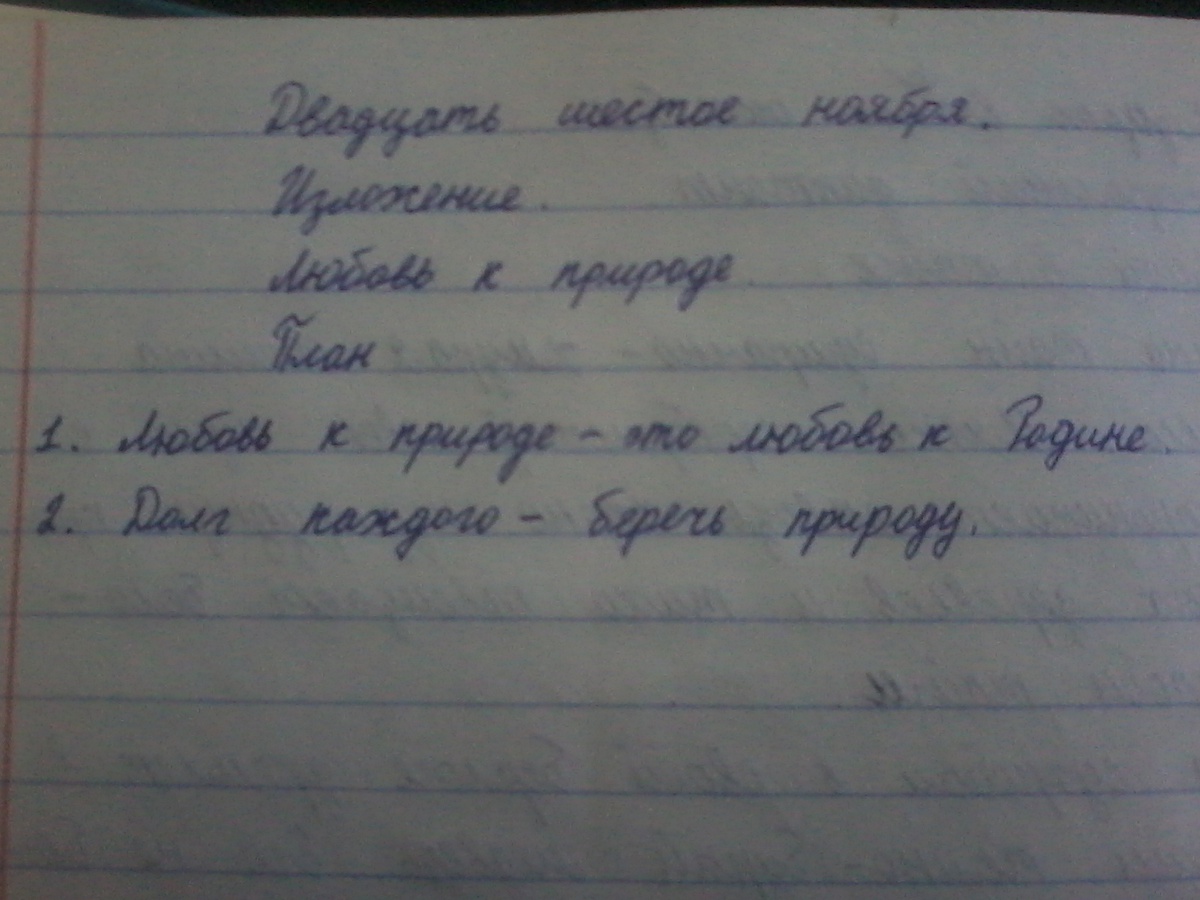 Двадцать шестое ноября.
Изложение.
Любовь к природе
План
1. Любовь к природе – это любовь к Родине.
2. Долг каждого – беречь природу.